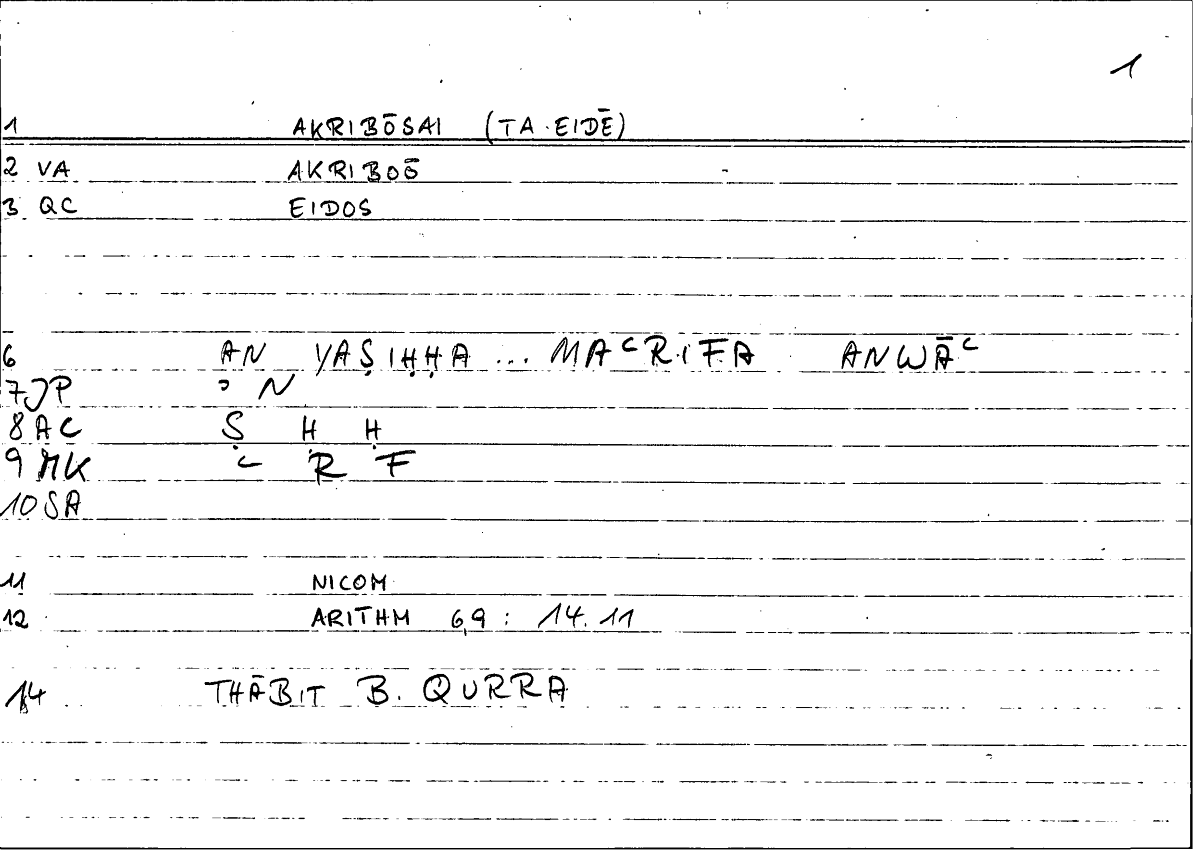 1
1 AKRIBŌSAI (TA EIDĒ)
2 VA AKRIBOŌ
3 QC EIDOS
6 AN YAṢIḤḤA ... MAᶜRIFA ANWĀᶜ
7 JP ᵓ N
8 AC Ṣ Ḥ Ḥ
9 MK ᶜ R F
10 SA
11 NICOM
12 ARITHM 6,9 : 14.11
14 THĀBIT B. QURRA